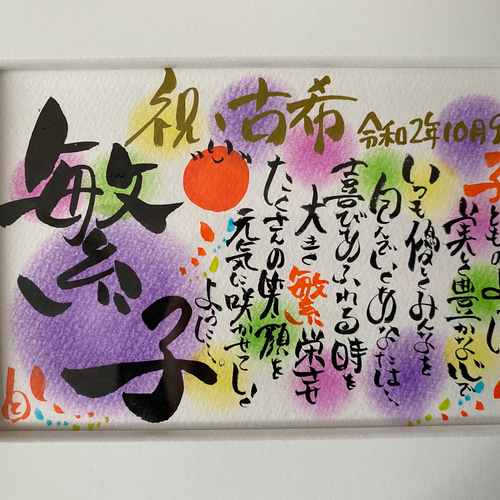 祝 古希
令和2年10月9
子どものように
実に豊かな心で
いつも優しくみんなを
包んでいくあなたは…
喜びあふれる時を
大きく繁栄させ
たくさんの笑顔を
元気に咲かせていく
ように…
繁子